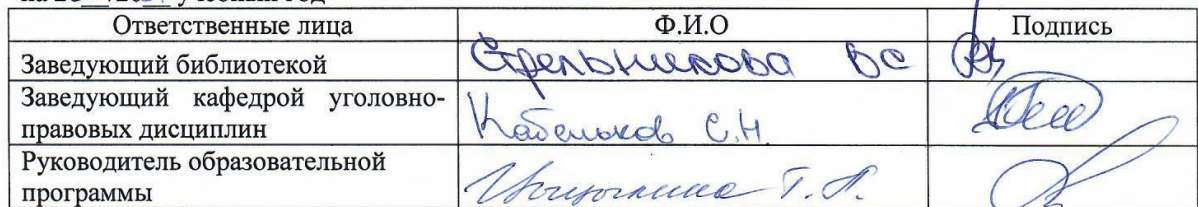 Ответственные лица Ф.И.О Подпись
Заведующий библиотекой Стрельникова ВС
Заведующий кафедрой уголовно-
правовых дисциплин Кабельков С.Н.
Руководитель образовательной
программы Т.